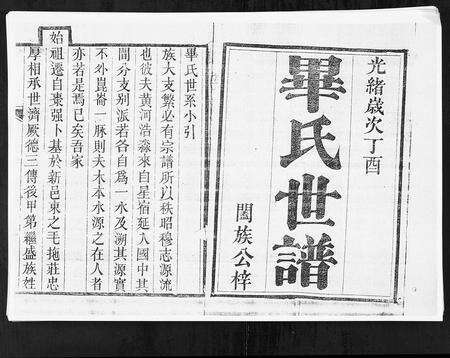 光緒歲次丁酉
畢氏世譜
闔族公梓
畢氏世系小引
族大支繁必有宗譜所以秩昭穆志源流
也彼夫黃河浩淼來自星宿延入國中其
間分支別派若各自為一水及溯其源實
不外崑崙一脉則夫木本水源之在人者
亦若是焉已矣吾家
始祖遷自棗强卜基於新邑東之毛拖莊忠
厚相承世濟厥德三傳後甲第繼盛族姓